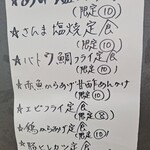 (限定⑩)
☆さんま塩焼定食
(限定⑩)
☆バトウ鯛フライ定食
(限定⑩)
☆赤魚からあげ甘酢あんかけ
(限定⑩)
☆エビフライ定食
(限定⑧)
☆鶏からあげ定食
(限定⑩)